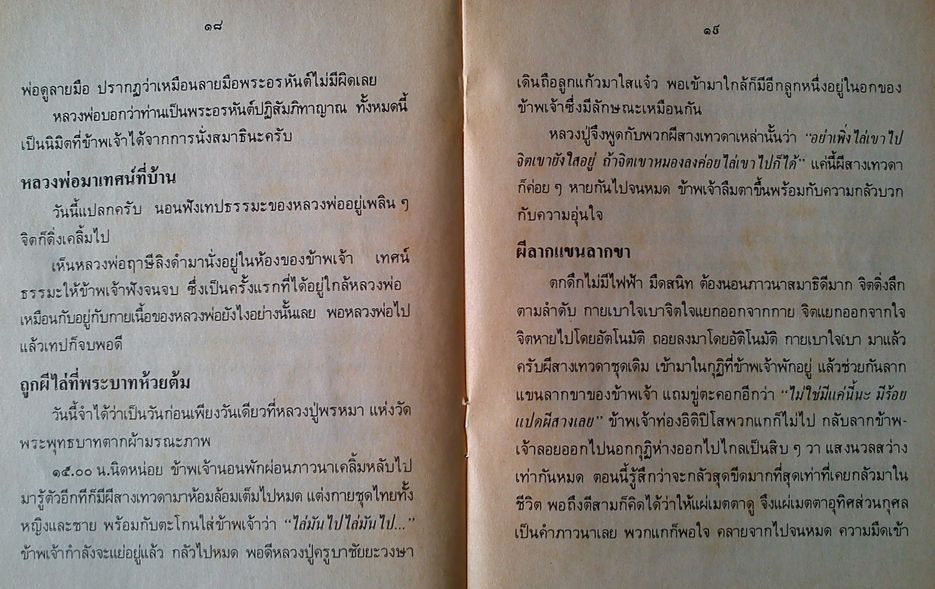 ๑๘
พ่อดูลายมือ ปรากฏว่าเหมือนลายมือพระอรหันต์ไม่มีผิดเลย
หลวงพ่อบอกว่าท่านเป็นพระอรหันต์ปฏิสัมภิทาญาณ ทั้งหมดนี้
เป็นนิมิตที่ข้าพเจ้าได้จากการนั่งสมาธินะครับ
หลวงพ่อมาเทศน์ที่บ้าน
วันนี้แปลกครับ นอนฟังเทปธรรมะของหลวงพ่ออยู่เพลิน ๆ
จิตก็ดิ่งเคลิ้มไป
เห็นหลวงพ่อฤาษีลิงดำมานั่งอยู่ในห้องของข้าพเจ้า เทศน์
ธรรมะให้ข้าพเจ้าฟังจนจบ ซึ่งเป็นครั้งแรกที่ได้อยู่ใกล้หลวงพ่อ
เหมือนกับอยู่กับกายเนื้อของหลวงพ่อยังไงอย่างนั้นเลย พอหลวงพ่อไป
แล้วเทปก็จบพอดี
ถูกผีไล่ที่พระบาทห้วยต้ม
วันนี้จำได้ว่าเป็นวันก่อนเพียงวันเดียวที่หลวงปู่พรหมา แห่งวัด
พระพุทธบาทตากผ้ามรณะภาพ
๑๕.๐๐ น.นิดหน่อย ข้าพเจ้านอนพักผ่อนภาวนาเคลิ้มหลับไป
มารู้ตัวอีกทีก็มีผีสางเทวดามาห้อมล้อมเต็มไปหมด แต่งกายชุดไทยทั้ง
หญิงและชาย พร้อมกับตะโกนใส่ข้าพเจ้าว่า "ไล่มันไปไล่มันไป..."
ข้าพเจ้ากำลังจะแย่อยู่แล้ว กลัวไปหมด พอดีหลวงปู่ครูบาชัยยะวงษา
๑๙
เดินถือลูกแก้วมาใสแจ๋ว พอเข้ามาใกล้ก็มีอีกลูกหนึ่งอยู่ในอกของ
ข้าพเจ้าซึ่งมีลักษณะเหมือนกัน
หลวงปู่จึงพูดกับพวกผีสางเทวดาเหล่านั้นว่า "อย่าเพิ่งไล่เขาไป
จิตเขายังใสอยู่ ถ้าจิตเขาหมองลงค่อยไล่เขาไปก็ได้" แค่นี้ผีสางเทวดา
ก็ค่อย ๆ หายกันไปจนหมด ข้าพเจ้าลืมตาขึ้นพร้อมกับความกลัวบวก
กับความอุ่นใจ
ผีลากแขนลากขา
ตกดึกไม่มีไฟฟ้า มืดสนิท ต้องนอนภาวนาสมาธิดีมาก จิตดิ่งลึก
ตามลำดับ กายเบาใจเบาจิตใจแยกออกจากกาย จิตแยกออกจากใจ
จิตหายไปโดยอัตโนมัติ ถอยลงมาโดยอัติโนมัติ กายเบาใจเบา มาแล้ว
ครับผีสางเทวดาชุดเดิม เข้ามาในกุฏิที่ข้าพเจ้าพักอยู่ แล้วช่วยกันลาก
แขนลากขาของข้าพเจ้า แถมขู่ตะคอกอีกว่า "ไม่ใช่มีแค่นี้นะ มีร้อย
แปดผีสางเลย" ข้าพเจ้าท่องอิติปิโสพวกแกก็ไม่ไป กลับลากข้าพ-
เจ้าลอยออกไปนอกกุฏิห่างออกไปไกลเป็นสิบ ๆ วา แสงนวลสว่าง
เท่ากันหมด ตอนนี้รู้สึกว่าจะกลัวสุดขีดมากที่สุดเท่าที่เคยกลัวมาใน
ชีวิต พอถึงตีสามก็คิดได้ว่าให้แผ่เมตตาดู จึงแผ่เมตตาอุทิศส่วนกุศล
เป็นคำภาวนาเลย พวกแกก็พอใจ คลายจากไปจนหมด ความมืดเข้า